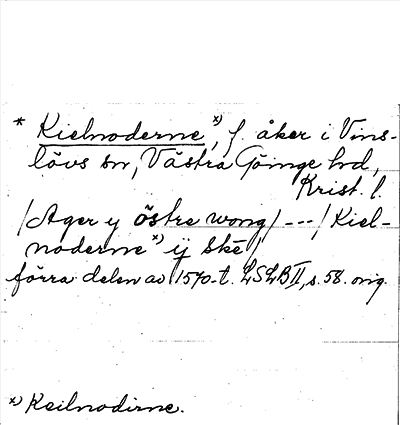 * Kielnoderne x), f. åker i Vins-
lövs sn, Västra Göinge hd,
Krist. l.
/Ager y östre wong/ --- / Kiel-
noderne x) ij Skē/
förra delen av 1570-t. LSLB II, s. 58. orig.
x) Keilnodirne.